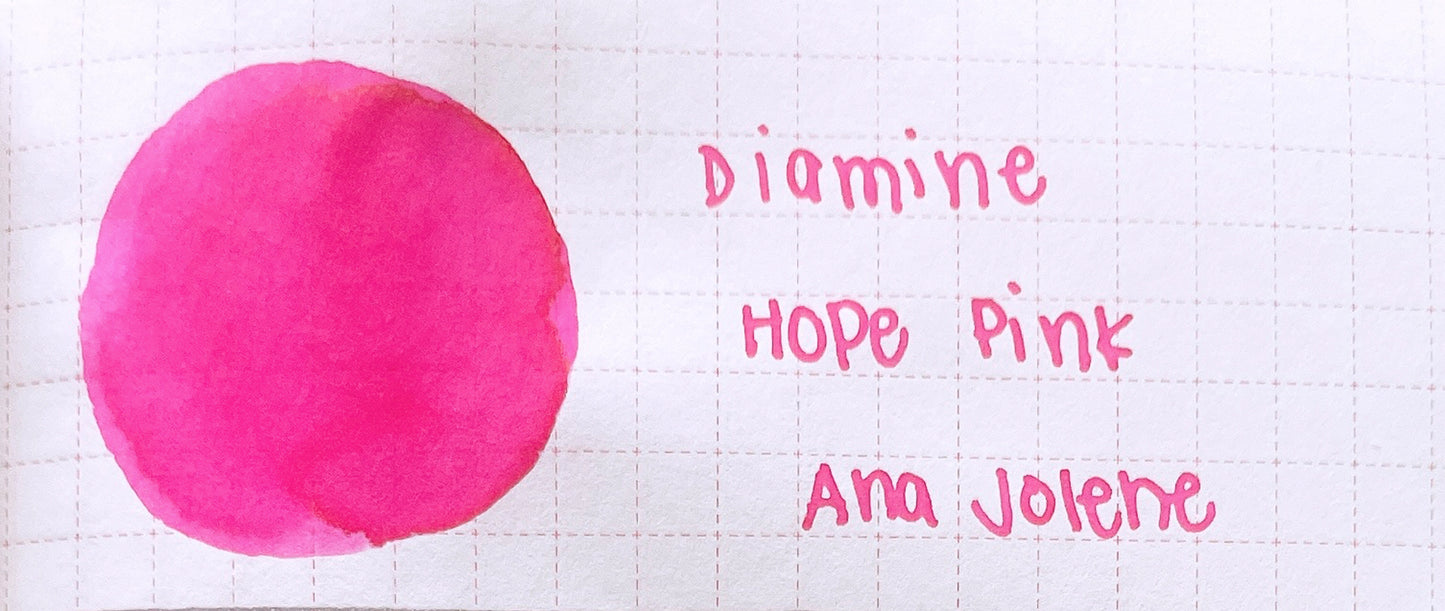 Diamine
Hope Pink
Ana Jolene